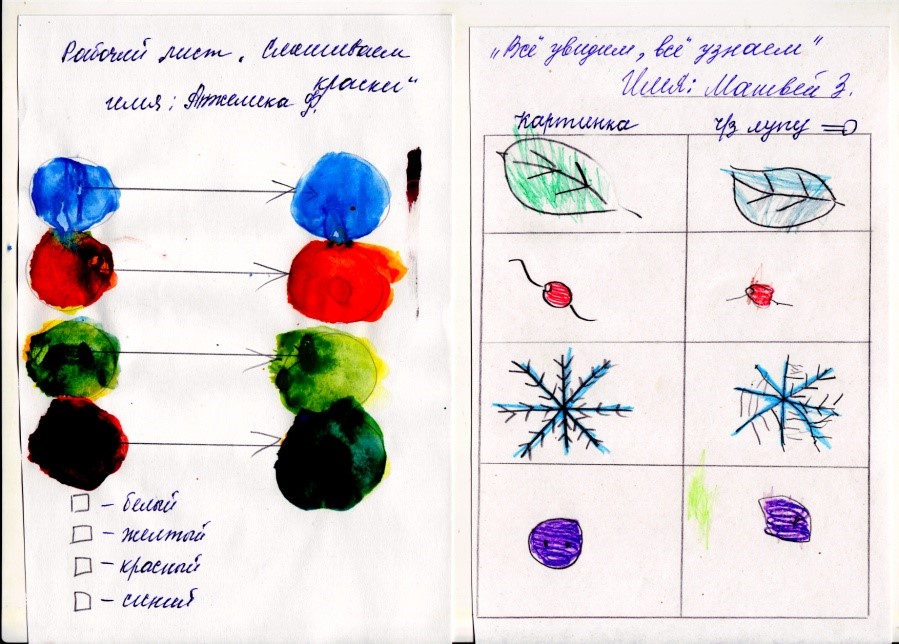 Рабочий лист „Смешиваем
краски“
имя: Анжелика Ф.
белый
желтый
красный
синий
„Всё увидим, всё узнаем“
Имя: Матвей З.
Картинка
ч/з лупу